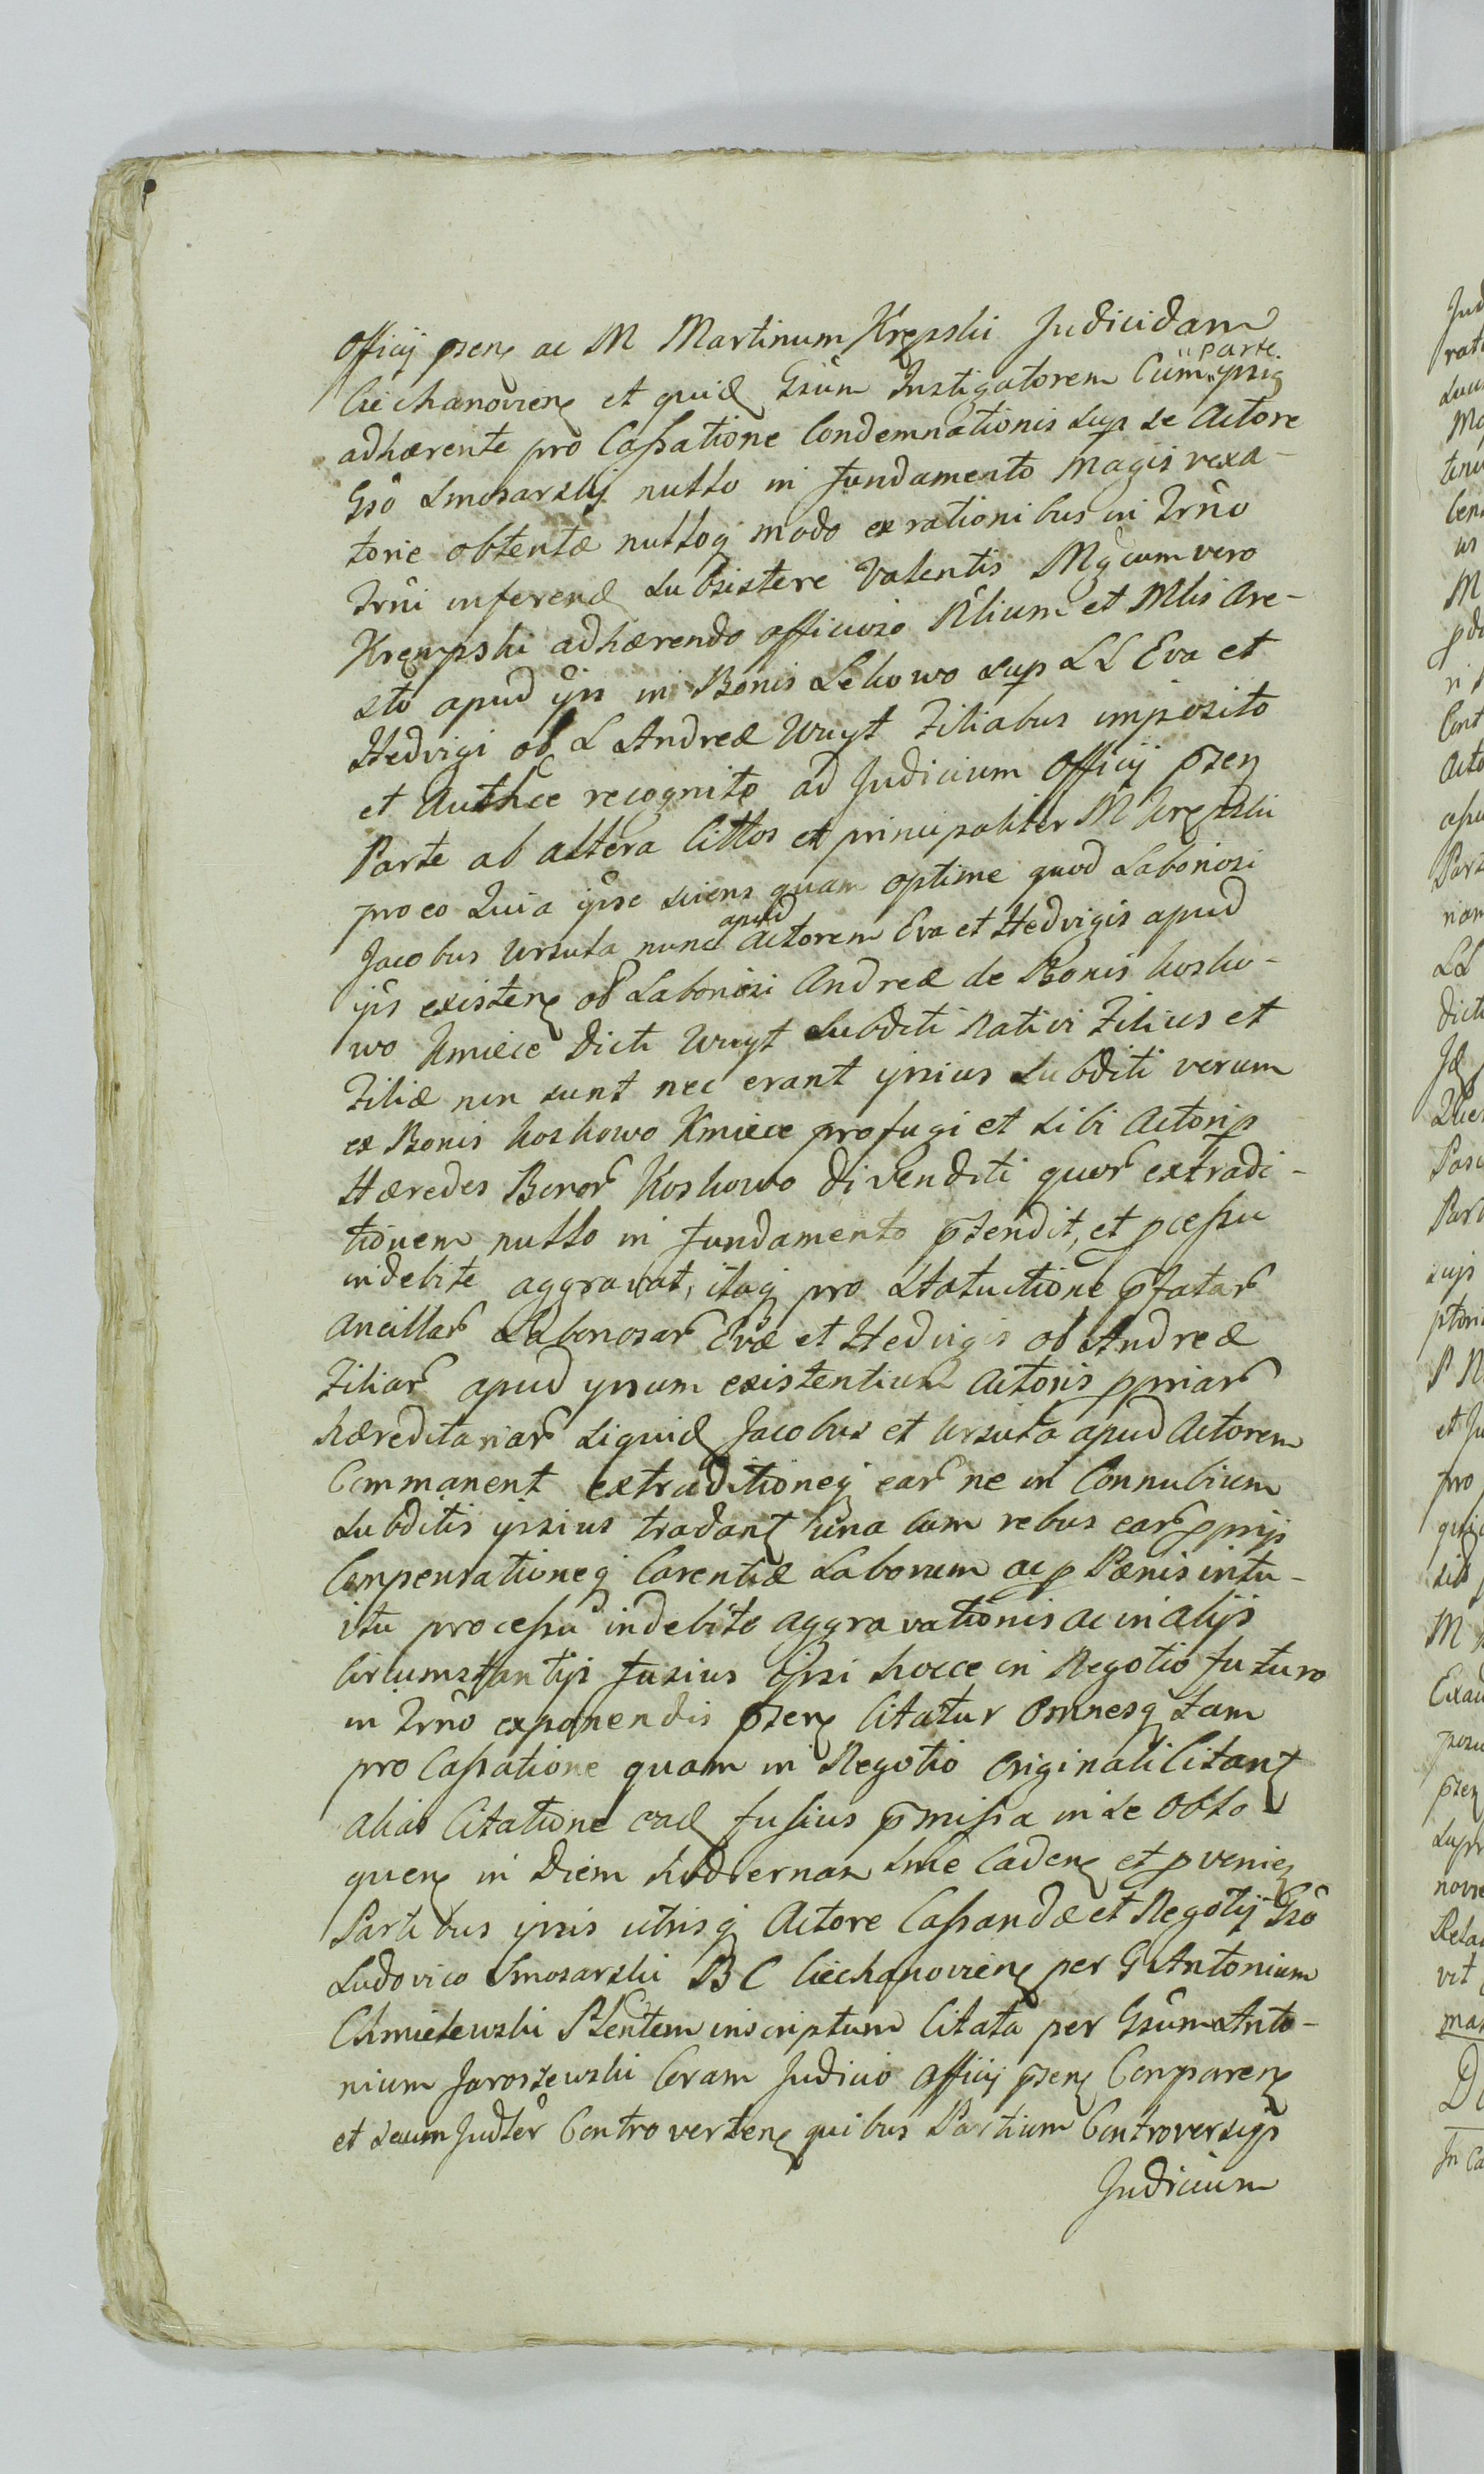 Officij pnsen ac M Martinum Krępski Judicidam
Ciechanovien et quid Gsum Instigatorem Cum parte ipsis
adhærente pro Cassatione Condemnationis sup se Actore
Gso Smosarskij nullo in fundamento magis vexa-
torie obtentæ nulloq modo ex rationibus in Trno
Trni inferend subsistere Valentis Mgcum vero
Krempski adhærendo officioso Rlium et Mlis Are-
sto apud ipsi in Bonis Lekowo sup LL Eva et
Hedvigi ol L Andreæ Wuyt Filiabus imposito
et Authce recognito ad Judicium Officij pnsen
Parte ab altera Cittos et principaliter M Krępski
pro eo Quia ipse sciens quam optime quod Laboriosi
Jacobus Ursula nunc apud Actorem Eva et Hedvigis apud
ips existen ol Laboriosi Andreæ de Bonis Kosko-
wo Kmiece dicti Wuyt Subditi Nativi Filius et
Filiæ non sunt nec erant ipsius Subditi verum
ex Bonis Koskowo Kmiece profugi et sibi Actori p
Hæredes Bonor Koskowo divenditi quor extradi-
tionem nullo in fundamento prtendit, et pcessu
indebite aggravat, itaq pro Statuitione prfatar
Ancillar Laboriosar Evæ et Hedvigis ol Andreæ
Filiar apud ipsum existentium Actoris ppriar
hæreditariar siquid Jacobus et Ursula apud Actorem
Commanent extraditioneq ear ne in Connubium
Subditis ipsius tradant una cum rebus ear pprijs
Compensationeq Carentiæ Laborum ac p Pænis intu-
itu processu indebite aggravationis ac in alijs
Circumstantijs fusius ipsi hocce in Negotio futuro
in Trno exponendis pnsen Citatur Omnesq tam
pro Cassatione quam in Negotio Originali Citant
alias Citatione ead fusius prmissa in se Oblo
quen in Diem hodiernam Sme Caden et pvenien
Partibus ipsis utrisq Actore Cassandæ et Negotij Gso
Ludovico Smosarski B C Ciechanovien per G Antonium
Chmielewski Plentem inscriptum Citata per Gsum Anto-
nium Jaroszewski Coram Judicio Officij pnsen Comparen
et secum Judter Controverten quibus Partium Controversijs
Judicium